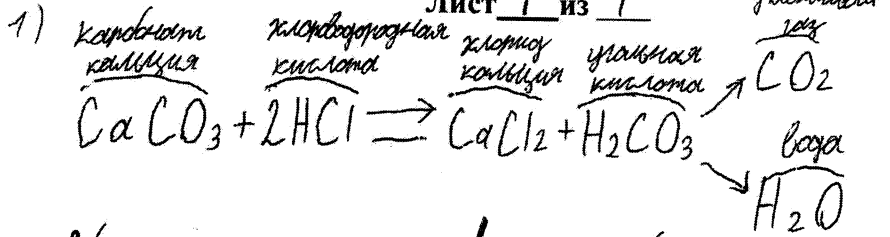 Лист 1 из 1
1) карбонат кальция хлороводородная кислота хлорид кальция угольная кислота газ
CaCO3 + 2HCl → CaCl2 + H2CO3
CO2
вода
H2O